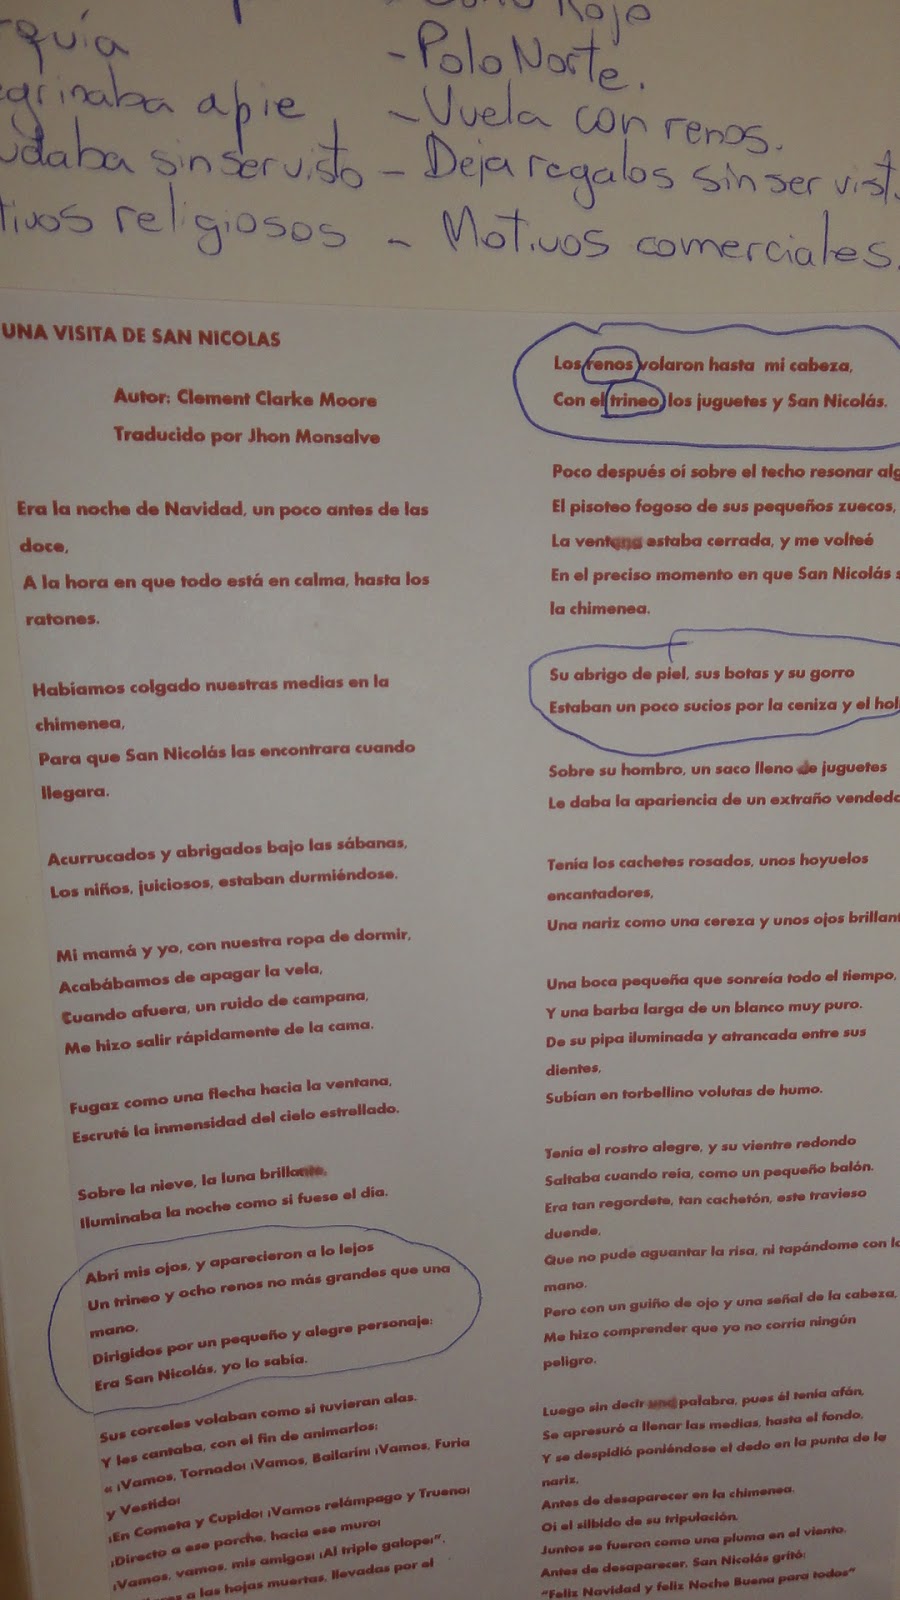 Rojo
- Polo Norte.
- Vuela con renos.
a pie
sin ser visto - Deja regalos sin ser vist
religiosos - Motivos comerciales.
UNA VISITA DE SAN NICOLAS
Autor: Clement Clarke Moore
Traducido por Jhon Monsalve
Era la noche de Navidad, un poco antes de las
doce,
A la hora en que todo está en calma, hasta los
ratones.
Habíamos colgado nuestras medias en la
chimenea,
Para que San Nicolás las encontrara cuando
llegara.
Acurrucados y abrigados bajo las sábanas,
Los niños, juiciosos, estaban durmiéndose.
Mi mamá y yo, con nuestra ropa de dormir,
Acabábamos de apagar la vela,
Cuando afuera, un ruido de campana,
Me hizo salir rápidamente de la cama.
Fugaz como una flecha hacia la ventana,
Escruté la inmensidad del cielo estrellado.
Sobre la nieve, la luna brillante,
Iluminaba la noche como si fuese el día.
Abrí mis ojos, y aparecieron a lo lejos
Un trineo y ocho renos no más grandes que una
mano,
Dirigidos por un pequeño y alegre personaje:
Era San Nicolás, yo lo sabía.
Sus corceles volaban como si tuvieran alas.
Y les cantaba, con el fin de animarlos:
« ¡Vamos, Tornado! ¡Vamos, Bailarín! ¡Vamos, Furia
y Vestido!
¡En Cometa y Cupido! ¡Vamos relámpago y Trueno!
¡Directo a ese porche, hacia ese muro!
¡Vamos, vamos, mis amigos! ¡Al triple galope!",
a las hojas muertas, llevadas por el
Los renos volaron hasta mi cabeza,
Con el trineo, los juguetes y San Nicolás.
Poco después oí sobre el techo resonar alg
El pisoteo fogoso de sus pequeños zuecos,
La ventana estaba cerrada, y me volteé
En el preciso momento en que San Nicolás s
la chimenea.
Su abrigo de piel, sus botas y su gorro
Estaban un poco sucios por la ceniza y el hol
Sobre su hombro, un saco lleno de juguetes
Le daba la apariencia de un extraño vendedo
Tenía los cachetes rosados, unos hoyuelos
encantadores,
Una nariz como una cereza y unos ojos brillant
Una boca pequeña que sonreía todo el tiempo,
Y una barba larga de un blanco muy puro.
De su pipa iluminada y atrancada entre sus
dientes,
Subían en torbellino volutas de humo.
Tenía el rostro alegre, y su vientre redondo
Saltaba cuando reía, como un pequeño balón.
Era tan regordete, tan cachetón, este travieso
duende,
Que no pude aguantar la risa, ni tapándome con la
mano.
Pero con un guiño de ojo y una señal de la cabeza,
Me hizo comprender que yo no corría ningún
peligro.
Luego sin decir una palabra, pues él tenía afán,
Se apresuró a llenar las medias, hasta el fondo,
Y se despidió poniéndose el dedo en la punta de la
nariz.
Antes de desaparecer en la chimenea.
Oí el silbido de su tripulación.
Juntos se fueron como una pluma en el viento.
Antes de desaparecer, San Nicolás gritó:
"Feliz Navidad y feliz Noche Buena para todos"